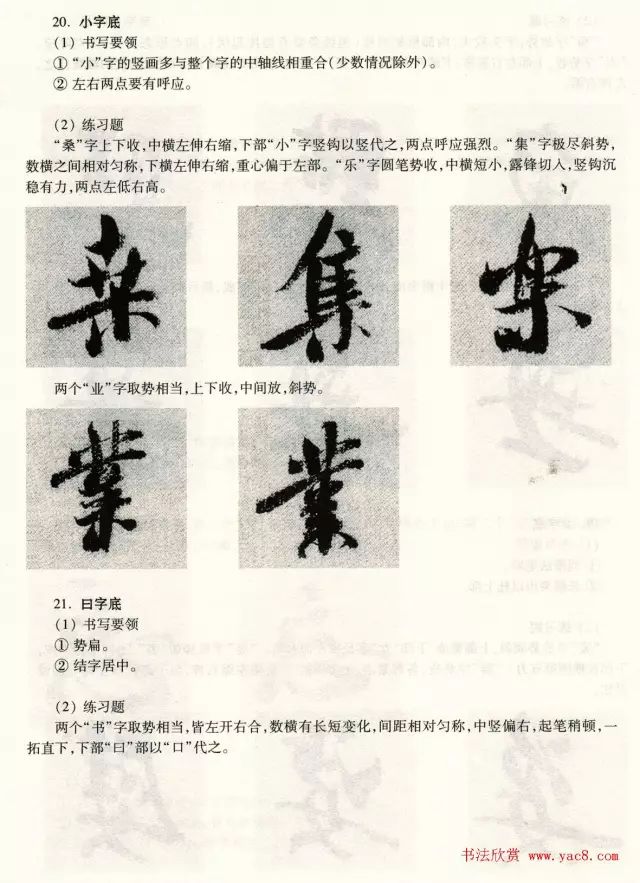 20. 小字底
(1) 书写要领
① “小”字的竖画多与整个字的中轴线相重合(少数情况除外)。
② 左右两点要有呼应。
(2) 练习题
“桑”字上下收,中横左伸右缩,下部“小”字竖钩以竖代之,两点呼应强烈。“集”字极尽斜势,
数横之间相对匀称,下横左伸右缩,重心偏于左部。“乐”字圆笔势收,中横短小,露锋切入,竖钩沉
稳有力,两点左低右高。
桒 集 樂
两个“业”字取势相当,上下收,中间放,斜势。
業 業
21. 曰字底
(1) 书写要领
① 势扁。
② 结字居中。
(2) 练习题
两个“书”字取势相当,皆左开右合,数横有长短变化,间距相对匀称,中竖偏右,起笔稍顿,一
拓直下,下部“曰”部以“口”代之。
书法欣赏 www.yac8.com